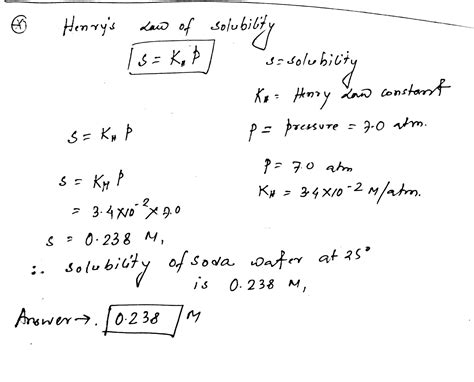 Henry's Law of solubility
S = K_H P
S = solubility
K_H = Henry Law constant
S = K_H P
P = pressure = 7.0 atm.
S = K_H P
P = 7.0 atm
= 3.4×10⁻² × 7.0
K_H = 3.4×10⁻² M/atm.
S = 0.238 M,
∴ solubility of soda water at 25°
is 0.238 M,
Answer →. 0.238 M